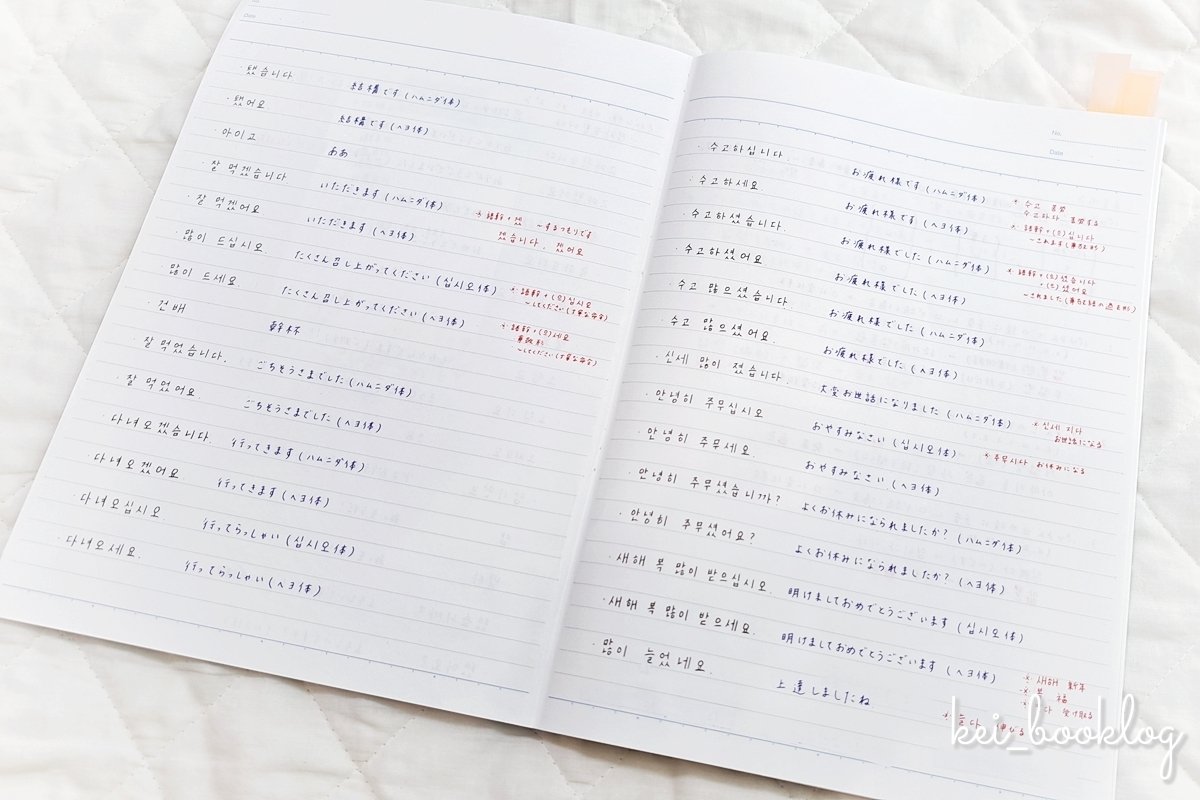 No.
Date
・됐습니다 結構です(ハムニダ体)
・됐어요 結構です(ヘヨ体)
・아이고 ああ
・잘 먹겠습니다 いただきます(ハムニダ体)
・잘 먹겠어요 いただきます(ヘヨ体)
※ 語幹+겠 ~するつもりです
겠습니다・겠어요
・많이 드십시오 たくさん召し上がってください(십시오体)
※ 語幹+(으)십시오
~してください(丁寧な命令)
・많이 드세요. たくさん召し上がってください(ヘヨ体)
※ 語幹+(으)세요
~してください(丁寧な命令)
・건배 乾杯
・잘 먹었습니다. ごちそうさまでした(ハムニダ体)
・잘 먹었어요. ごちそうさまでした(ヘヨ体)
・다녀오겠습니다. 行ってきます(ハムニダ体)
・다녀오겠어요. 行ってきます(ヘヨ体)
・다녀오십시오. 行ってらっしゃい(십시오体)
・다녀오세요. 行ってらっしゃい(ヘヨ体)
No.
Date
・수고하십니다. お疲れ様です(ハムニダ体)
※ 수고 苦労
수고하다 苦労する
・수고하세요. お疲れ様です(ヘヨ体)
※ 語幹+(으)십니다
~されます
・수고하셨습니다. お疲れ様でした(ハムニダ体)
※ 語幹+(으)셨습니다
+(으)셨어요
~されました
・수고하셨어요 お疲れ様でした(ヘヨ体)
・수고 많으셨습니다. お疲れ様でした(ハムニダ体)
・수고 많으셨어요. お疲れ様でした(ヘヨ体)
・신세 많이 졌습니다. 大変お世話になりました(ハムニダ体)
※ 신세 지다
お世話になる
・안녕히 주무십시오 おやすみなさい(십시오体)
※ 주무시다 お休みになる
・안녕히 주무세요 おやすみなさい(ヘヨ体)
・안녕히 주무셨습니까? よくお休みになられましたか?(ハムニダ体)
・안녕히 주무셨어요? よくお休みになられましたか?(ヘヨ体)
・새해 복 많이 받으십시오. 明けましておめでとうございます(십시오体)
・새해 복 많이 받으세요. 明けましておめでとうございます(ヘヨ体)
※ 새해 新年
福
受け取る
・많이 늘었네요. 上達しましたね
※ 늘다 伸びる
kei_booklog